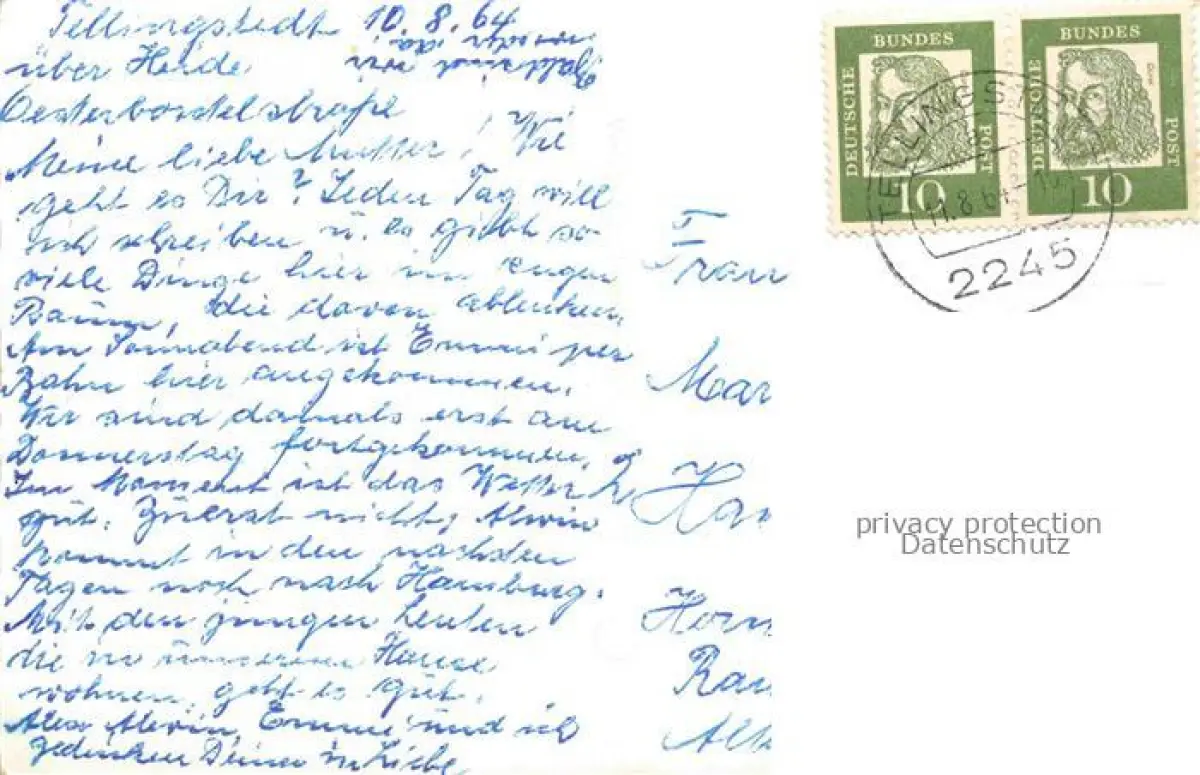 Tellingstedt 10.8.64
über Heide
Oesterborstelstraße
Meine liebe Mutter! Wie
geht es Dir? Jeden Tag will
ich schreiben u. es giebt so
viele Dinge hier im engen
Raum, die davon ablenken.
Am Sonnabend ist Emmi per
Bahn hier angekommen.
Wir sind damals erst am
Donnerstag fortgekommen,
Im Moment ist das Wetter
gut. Zuerst nicht, Alwin
kommt in den nächsten
Tagen noch nach Hamburg.
Mit den jungen Leuten
die in unserem Hause
wohnen, geht es gut.
Alwin, Emmi und ich
gedenken Deiner in Liebe
Frau
Mar
Ham
Horn
Rau
Alt
DEUTSCHE BUNDES POST 10
DEUTSCHE BUNDES POST 10
TELLINGST
11.8.64
2245
privacy protection
Datenschutz